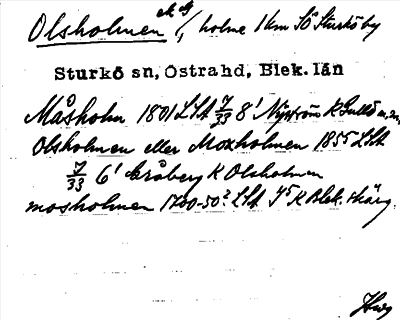 Olsholmen, holme 1 km SÖ Sturkö by
Sturkö sn, Östrahd, Blek. län
Måsholm 1801 LSA 7/33 8' Nyström K Gullö m.m.
Olsholmen eller Moxholmen 1855 LSA
7/33 6' Gråberg K Olsholmen
mosholmen 1700-50? LSA K Blek. skärg.